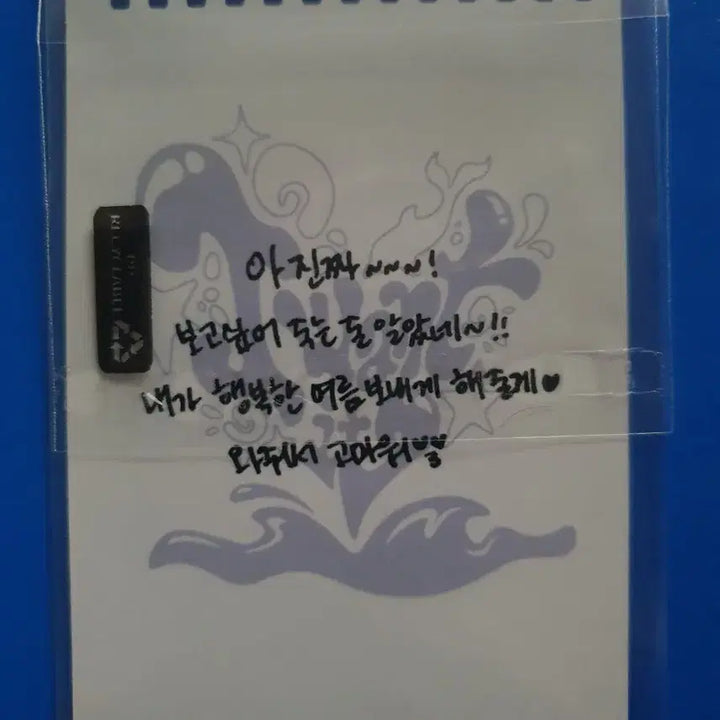 아 진짜~~~!
보고싶어 죽는 줄 알았네~!!
내가 행복한 여름 보내게 해줄게♥
와줘서 고마워
RECYCLABLE